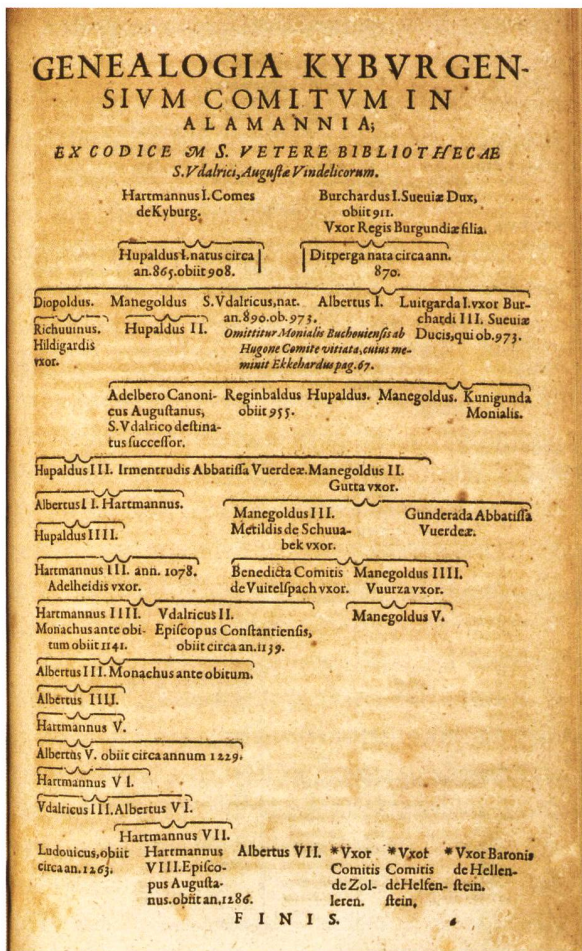 GENEALOGIA KYBVRGEN-
SIVM COMITVM IN
ALAMANNIA;
EX CODICE M S. VETERE BIBLIOTHECAE
S. Vdalrici, Augustæ Vindelicorum.
Hartmannus I. Comes
de Kyburg.
Burchardus I. Sueuiæ Dux,
obiit 911.
Vxor Regis Burgundiæ filia.
Hupaldus I. natus circa
an. 865. obiit 908.
Ditperga nata circa ann.
870.
Diopoldus.
Manegoldus
S. Vdalricus, nat.
an. 890. ob. 973.
Albertus I.
Luitgarda I. vxor Bur-
chardi III. Sueuiæ
Ducis, qui ob. 973.
Richuuinus.
Hildigardis
vxor.
Hupaldus II.
Omittitur Monialis Buchouiensis ab
Hugone Comite vittata, cuius me-
minit Ekkehardus pag. 67.
Adelbero Canoni-
cus Augustanus,
S. Vdalrico destina-
tus successor.
Reginbaldus
obiit 955.
Hupaldus.
Manegoldus.
Kunigunda
Monialis.
Hupaldus III. Irmentrudis Abbatissa Vuerdeæ. Manegoldus II.
Gutta vxor.
Albertus II. Hartmannus.
Manegoldus III.
Metildis de Schuua-
bek vxor.
Gunderada Abbatissa
Vuerdeæ.
Hupaldus IIII.
Hartmannus III. ann. 1078.
Adelheidis vxor.
Benedicta Comitis
de Vuitelspach vxor.
Manegoldus IIII.
Vuurza vxor.
Hartmannus IIII.
Monachus ante obi-
tum obiit 1141.
Vdalricus II.
Episcopus Constantiensis,
obiit circa an. 1139.
Manegoldus V.
Albertus III. Monachus ante obitum.
Albertus IIII.
Hartmannus V.
Albertus V. obiit circa annum 1229.
Hartmannus VI.
Vdalricus III. Albertus VI.
Hartmannus VII.
Ludouicus, obiit
circa an. 1263.
Hartmannus
VIII. Episco-
pus Augusta-
nus. obiit an. 1286.
Albertus VII.
*Vxor
Comitis
de Zol-
leren.
*Vxor
Comitis
de Helfen-
stein.
*Vxor Baronis
de Hellen-
stein.
FINIS.